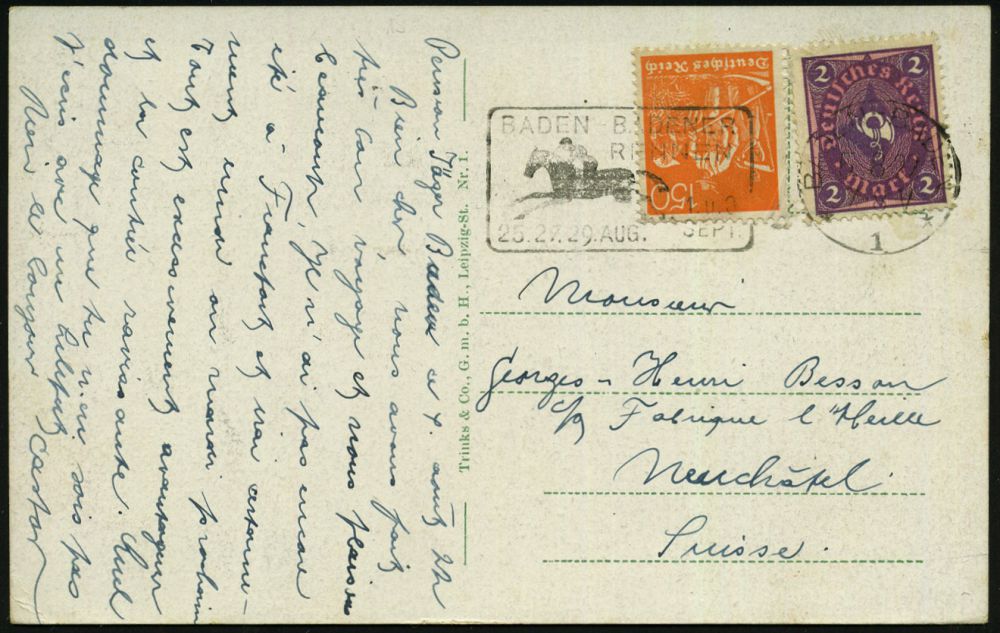 Pension Jäger Baden le 4. août 22
Bien cher, nous avons fait
très bon voyage et nous plaisons
beaucoup. Je n'ai pas encore
été à Francfort et irai certaine-
ment lundi ou mardi prochain
Tout est excessivement avantageux
et la contrée ravissante. Quel
dommage que tu n'en sois pas
J'écris avec un
Rien le bonjour Castor
Trinks & Co., G. m. b. H., Leipzig-St. Nr. I.
BADEN-BADENER
RENNEN
25. 27. 29. AUG. SEPT.
Deutsches Reich
150
2 2
Deutsches Reich
Mark
2 2
1
Monsieur
Georges-Henri Besson
c/o Fabrique l'Heille
Neuchâtel
Suisse.